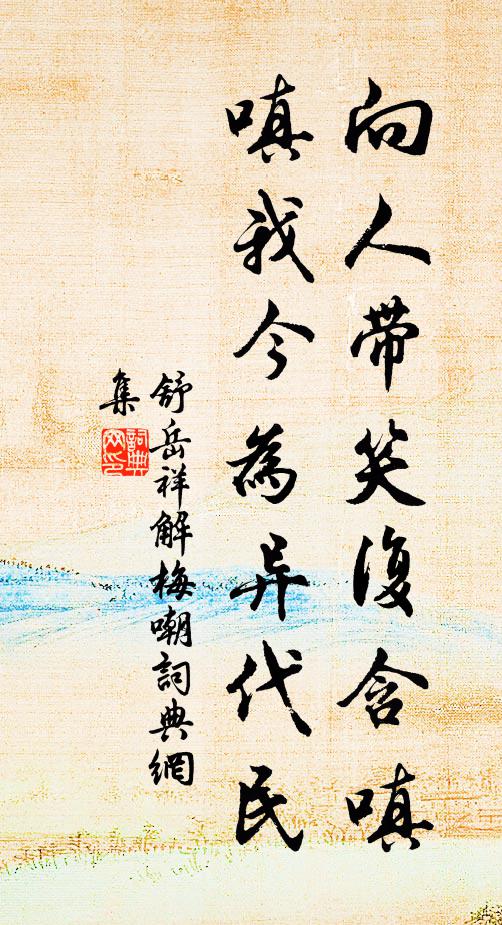 向人带笑復含嗔
嗔我今為异代民
舒岳祥解梅嘲詞典網
集
詞典網印